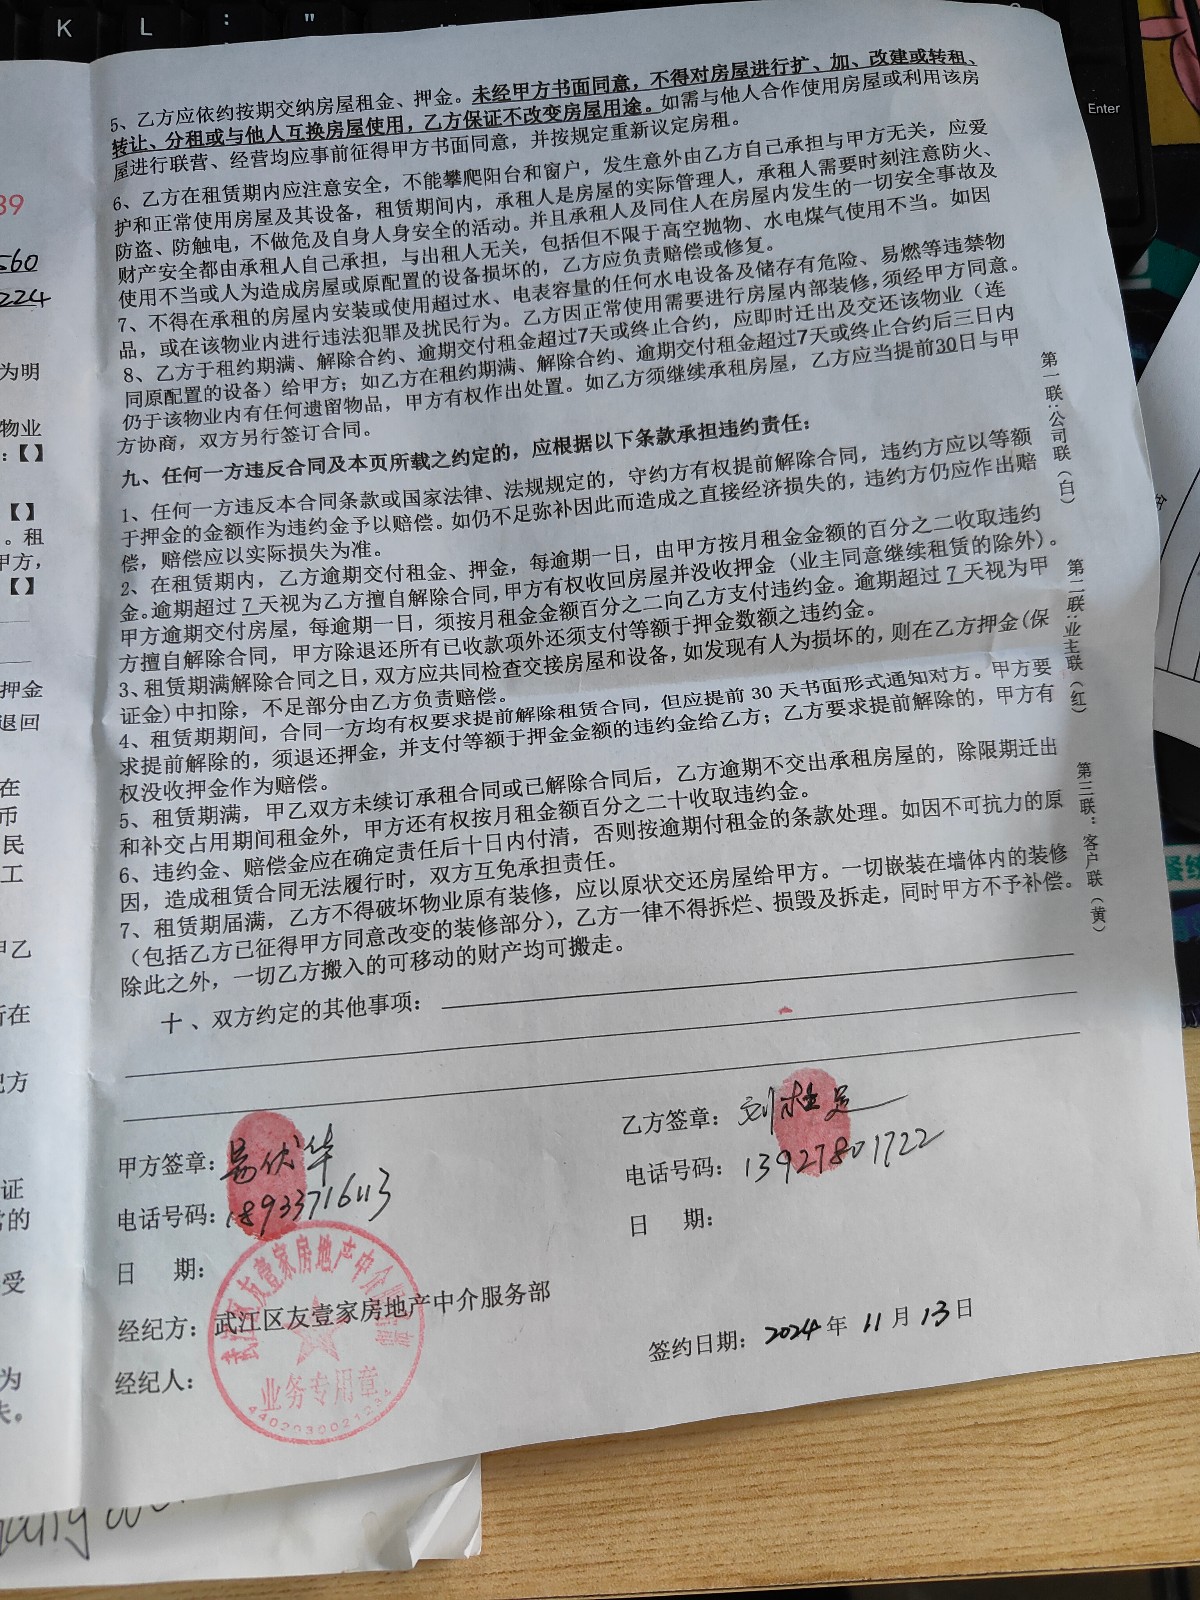 K
L
:
;
"
Enter
5、乙方应依约按期交纳房屋租金、押金。未经甲方书面同意，不得对房屋进行扩、加、改建或转租、
转让、分租或与他人互换房屋使用，乙方保证不改变房屋用途。如需与他人合作使用房屋或利用该房
屋进行联营、经营均应事前征得甲方书面同意，并按规定重新议定房租。
6、乙方在租赁期内应注意安全，不能攀爬阳台和窗户，发生意外由乙方自己承担与甲方无关，应爱
护和正常使用房屋及其设备，租赁期间内，承租人是房屋的实际管理人，承租人需要时刻注意防火、
防盗、防触电，不做危及自身人身安全的活动。并且承租人及同住人在房屋内发生的一切安全事故及
财产安全都由承租人自己承担，与出租人无关，包括但不限于高空抛物、水电煤气使用不当。如因
使用不当或人为造成房屋或原配置的设备损坏的，乙方应负责赔偿或修复。
7、不得在承租的房屋内安装或使用超过水、电表容量的任何水电设备及储存有危险、易燃等违禁物
品，或在该物业内进行违法犯罪及扰民行为。乙方因正常使用需要进行房屋内部装修，须经甲方同意。
8、乙方于租约期满、解除合约、逾期交付租金超过7天或终止合约，应即时迁出及交还该物业（连
同原配置的设备）给甲方；如乙方在租约期满、解除合约、逾期交付租金超过7天或终止合约后三日内
仍于该物业内有任何遗留物品，甲方有权作出处置。如乙方须继续承租房屋，乙方应当提前30日与甲
方协商，双方另行签订合同。
九、任何一方违反合同及本页所载之约定的，应根据以下条款承担违约责任：
1、任何一方违反本合同条款或国家法律、法规规定的，守约方有权提前解除合同，违约方应以等额
于押金的金额作为违约金予以赔偿。如仍不足弥补因此而造成之直接经济损失的，违约方仍应作出赔
偿，赔偿应以实际损失为准。
2、在租赁期内，乙方逾期交付租金、押金，每逾期一日，由甲方按月租金金额的百分之二收取违约
金。逾期超过 7 天视为乙方擅自解除合同，甲方有权收回房屋并没收押金（业主同意继续租赁的除外）。
甲方逾期交付房屋，每逾期一日，须按月租金金额百分之二向乙方支付违约金。逾期超过 7 天视为甲
方擅自解除合同，甲方除退还所有已收款项外还须支付等额于押金数额之违约金。
3、租赁期满解除合同之日，双方应共同检查交接房屋和设备，如发现有人为损坏的，则在乙方押金(保
证金)中扣除，不足部分由乙方负责赔偿。
4、租赁期期间，合同一方均有权要求提前解除租赁合同，但应提前 30 天书面形式通知对方。甲方要
求提前解除的，须退还押金，并支付等额于押金金额的违约金给乙方；乙方要求提前解除的，甲方有
权没收押金作为赔偿。
5、租赁期满，甲乙双方未续订承租合同或已解除合同后，乙方逾期不交出承租房屋的，除限期迁出
和补交占用期间租金外，甲方还有权按月租金额百分之二十收取违约金。
6、违约金、赔偿金应在确定责任后十日内付清，否则按逾期付租金的条款处理。如因不可抗力的原
因，造成租赁合同无法履行时，双方互免承担责任。
7、租赁期届满，乙方不得破坏物业原有装修，应以原状交还房屋给甲方。一切嵌装在墙体内的装修
（包括乙方已征得甲方同意改变的装修部分），乙方一律不得拆烂、损毁及拆走，同时甲方不予补偿。
除此之外，一切乙方搬入的可移动的财产均可搬走。
十、双方约定的其他事项：
甲方签章：易伏华
电话号码：18933716113
日 期：
经纪方：武江区友壹家房地产中介服务部
经纪人：
乙方签章：刘桂
电话号码：13927801722
日 期：
签约日期：2024 年 11 月 13 日
武江区友壹家房地产中介服务部
业务专用章
第一联：公司联（白）
第二联：业主联（红）
第三联：客户联（黄）
39
560
224
为明
物业
：【】
【】
。租
甲方，
【】
押金
退回
在
币
民
工
甲乙
所在
方
证
的
受
为
失。